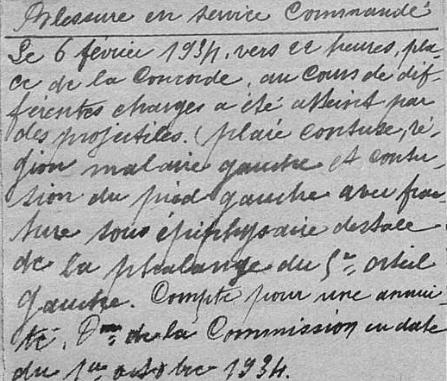 Blessure en service Commandé
Le 6 février 1934, vers 22 heures, pla-
ce de la Concorde, au cours de dif-
ferentes charges a été atteint par
des projectiles. (plaie contuse, ré-
gion malaire gauche et contu-
sion du pied gauche avec frac-
ture sous épiphysaire distale
de la phalange du 5e orteil
gauche. Compte pour une annui-
té. Don de la Commission en date
du 1er octobre 1934.